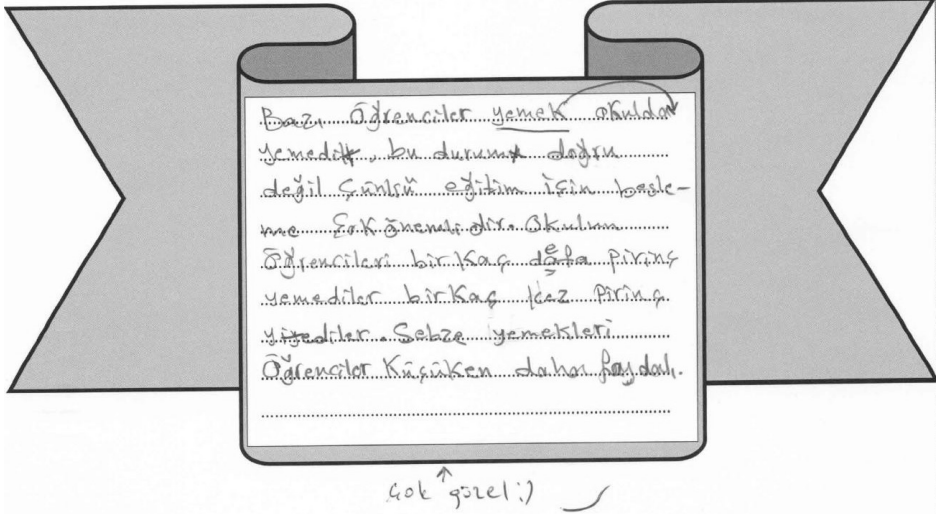 Bazı Öğrenciler yemek okulda
yemedik, bu durum doğru
değil çünkü eğitim için besle-
me çok önemlidir. Okulun
Öğrencileri bir kaç defa pirinç
yemediler bir kaç kez pirinç
yiyediler. Sebze yemekleri
Öğrenciler Küçükken daha faydalı.
çok güzel :)